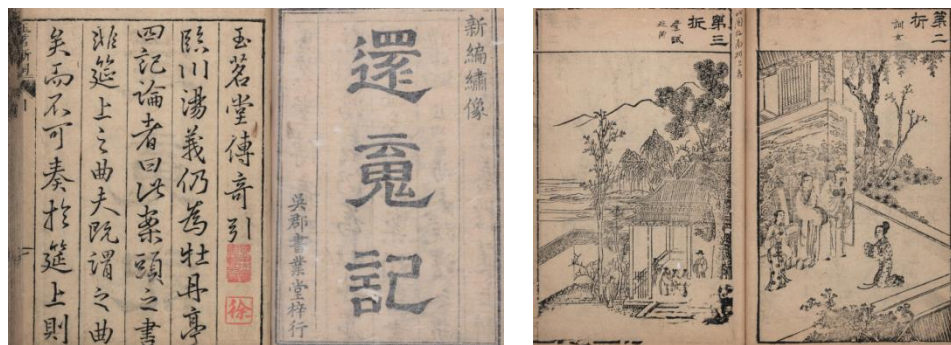 新編繡像
還䰟記
吳郡書業堂梓行
玉茗堂傳奇引
徐
臨川湯義仍為牡丹亭
四記論者曰此案頭之書
非筵上之曲夫既謂之曲
矣而不可奏扵筵上則
第二折
訓女
第三折